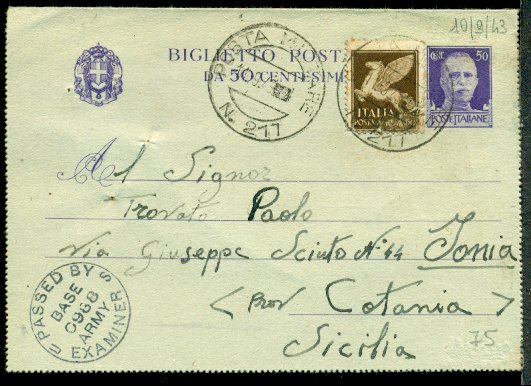 10/9/43
BIGLIETTO POSTA
DA 50 CENTESIMI
POSTA MILITARE
N. 217
ITALIA
POSTA AEREA
217
CENT. 50
POSTE ITALIANE
Al Signor
Trovato Paolo
Via Giuseppe Sciuto N° 44 Jonia
(Prov Catania)
Sicilia
PASSED BY
BASE
0968
ARMY
EXAMINER
75